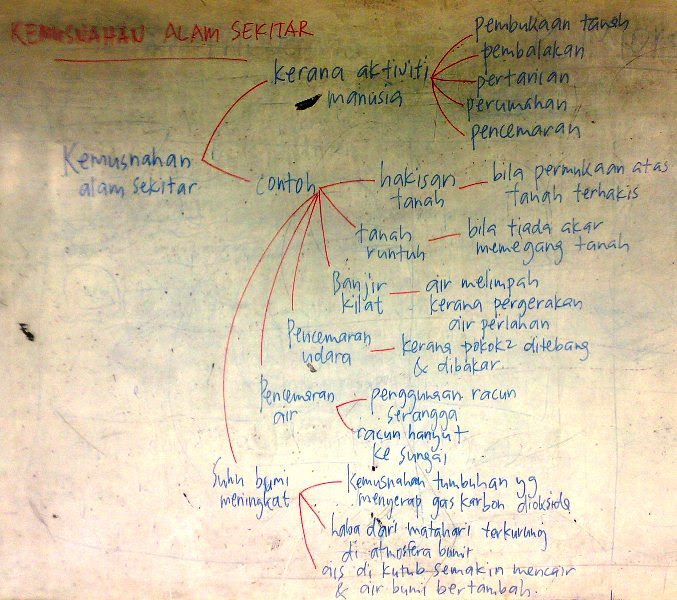 KEMUSNAHAN ALAM SEKITAR
Kemusnahan
alam sekitar
kerana aktiviti
manusia
pembukaan tanah
pembalakan
pertanian
perumahan
pencemaran
contoh
hakisan
tanah
bila permukaan atas
tanah terhakis
tanah
runtuh
bila tiada akar
memegang tanah
Banjir
kilat
air melimpah
kerana pergerakan
air perlahan
Pencemaran
udara
kerana pokok2 ditebang
& dibakar
Pencemaran
air
penggunaan racun
serangga
racun hanyut
ke sungai
Suhu bumi
meningkat
Kemusnahan tumbuhan yg
menyerap gas karbon dioksida
haba dari matahari terkurung
di atmosfera bumi
ais di kutub semakin mencair
& air bumi bertambah.